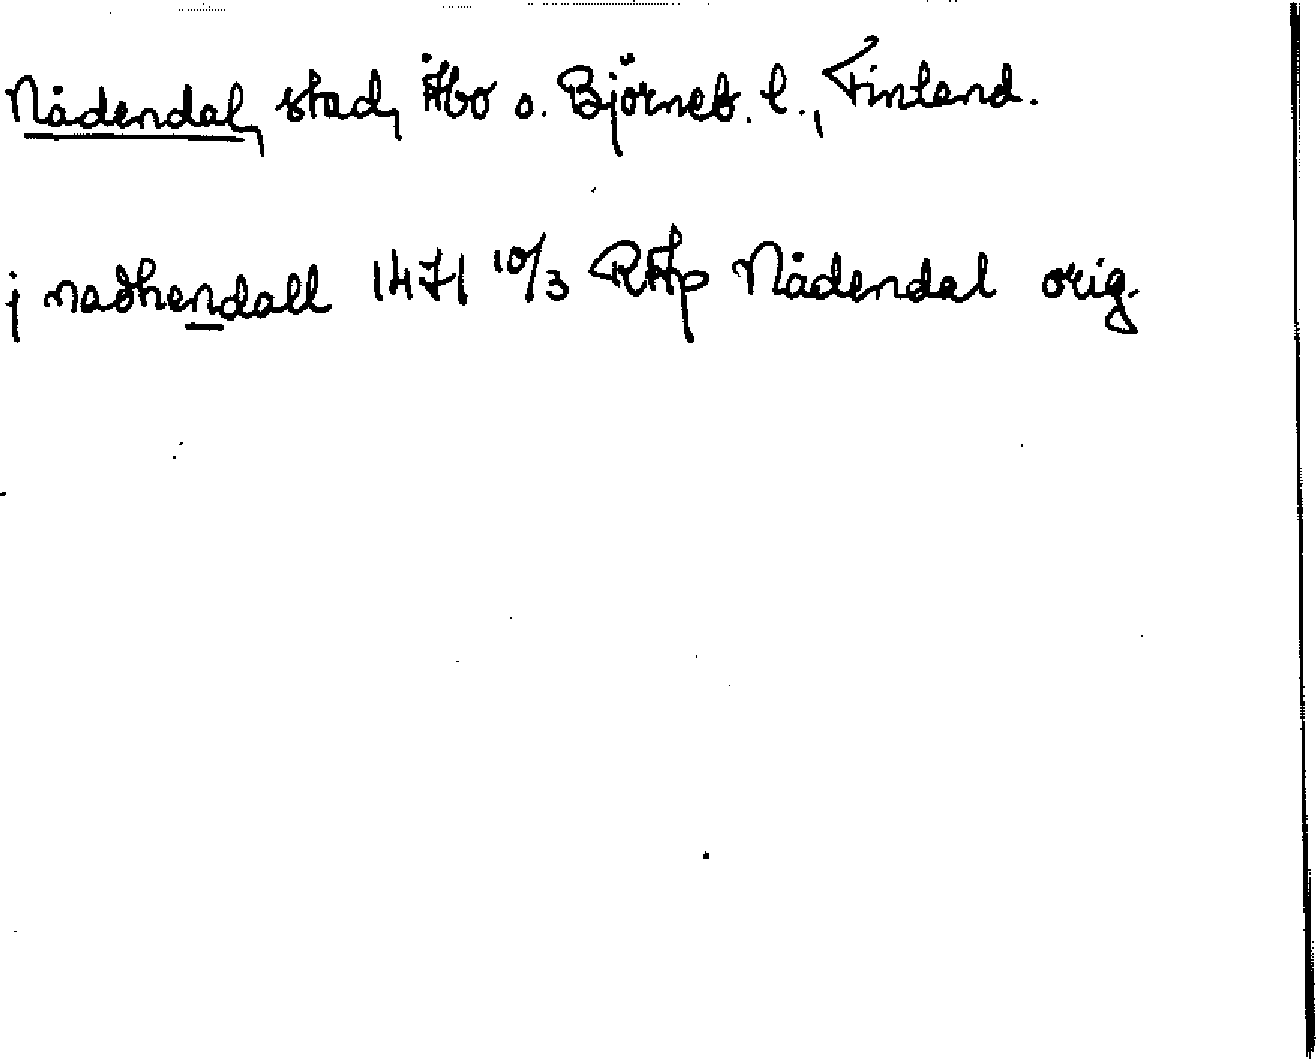 Nådendal, stad, Åbo o. Björneb. l., Finland.
j nadhendall 1471 10/3 RAp Nådendal orig.